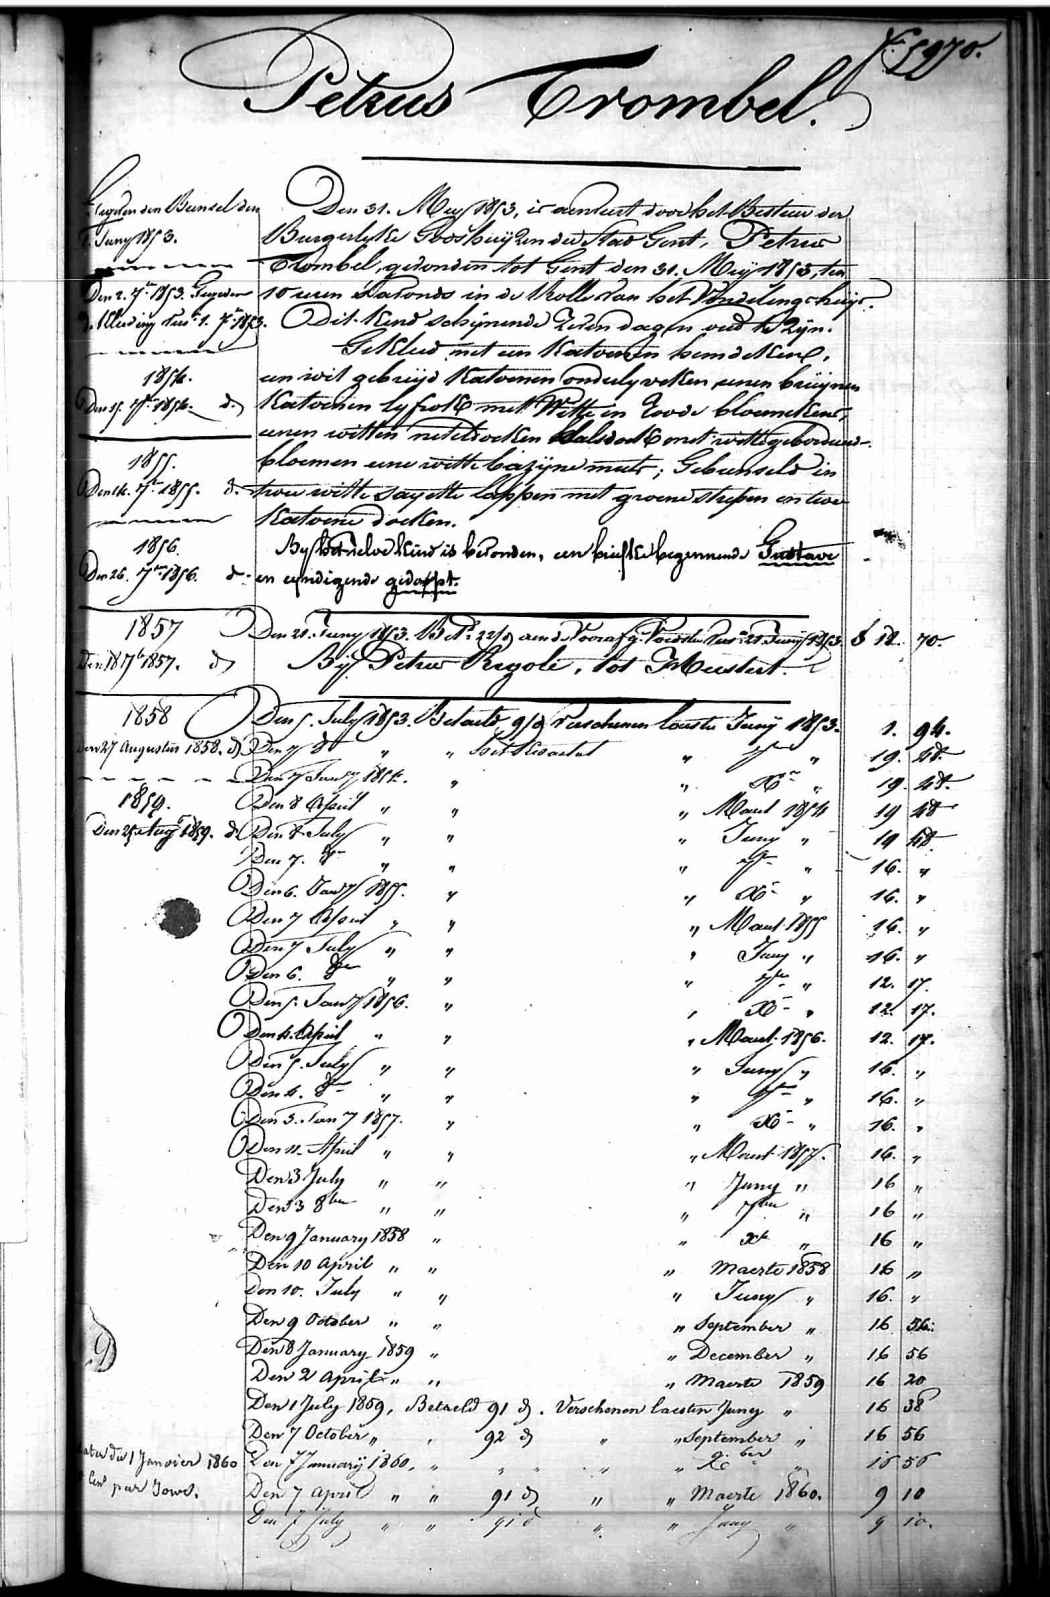 N. 5970.
Petrus Trombel.
Gegeven den Bunsel den
Juny 1853.
Den 2. 7br 1853. Gegeven
de Kleeding 7br 1853.
1854.
Den 15. 7br 1854. do
1855.
Den 14. 7br 1855. do
1856.
Den 26. 7ber 1856. do
1857
Den 18 7br 1857. do
1858
Den 27 Augustus 1858. do
1859.
Den 25 Aug 1859. do
du 1 Janvier 1860
par Jour.
Den 31. Mey 1853, is aenveert door het Bestuer der
Burgerlyke Godshuyzen der Stad Gent, Petrus
Trombel, gevonden tot Gent den 31. Mey 1853, ten
10 uren s'avonds in de Rolle van het Vondelinghuys.
Dit kind schynende zeven dagen oud te zyn.
Gekleed met een Katoenen hemdeken,
een wit gebreyd Katoenen onderlyveken, eenen bruynen
Katoenen lyfrok met Witte en Roode bloemekens,
eenen witten neteldoeken halsdoek met witte geborduerde
bloemen eene witte bazyne muts; Gebunseld in
twee witte sayette lappen met groene strepen en twee
Katoene doeken.
By hetzelve kind is bevonden, een briefke beginnende Gustave
en eyndigende gedoopt.
Den 21. Juny 1853. Bet. 22/d aen de Voorafg. Voedster Juny 1853. f 12. 70.
By Petrus Rigole, tot Meulest.
Den 5. July 1853. Betaeld 9/d Verschenen laesten Juny 1853. 1. 94.
Den 7 8br " " het Kwartael " 7ber " 19. 48.
Den 7 Jany 1854. " " Xbr " 19. 48.
Den 8 April " " " Maert 1854 19 48
Den 8 July " " " Juny " 19 48
Den 7. 8br " " " 7br " 16. "
Den 6. Jany 1855. " " Xbr " 16. "
Den 7 April " " " Maert 1855 16. "
Den 7 July " " " Juny " 16. "
Den 6. 8br " " " 7br " 12. 17.
Den 5. Jany 1856. " " Xbr " 12. 17.
Den 4. April " " " Maert 1856. 12. 17.
Den 5. July " " " Juny " 16. "
Den 4. 8br " " " 7br " 16. "
Den 3. Jany 1857. " " Xbr " 16. "
Den 11. April " " " Maert 1857. 16. "
Den 3 July " " " Juny " 16 "
Den 3 8ber " " " 7ber " 16 "
Den 9 January 1858 " " Xbr " 16 "
Den 10 April " " " Maerte 1858 16 "
Den 10. July " " " Juny " 16. "
Den 9 October " " " September " 16 56.
Den 8 January 1859 " " December " 16 56
Den 2 April " " " Maerte 1859 16 20
Den 1 July 1859, Betaeld 91 d. Verschenen laesten Juny " 16 38
Den 7 October " " 92 d " " September " 16 56
Den 7 January 1860. " " " " " Xber " 16 56
Den 7 April " " 91 d " " Maerte 1860. 9 10
Den 7 July " " 91 d " " Juny " 9 10.